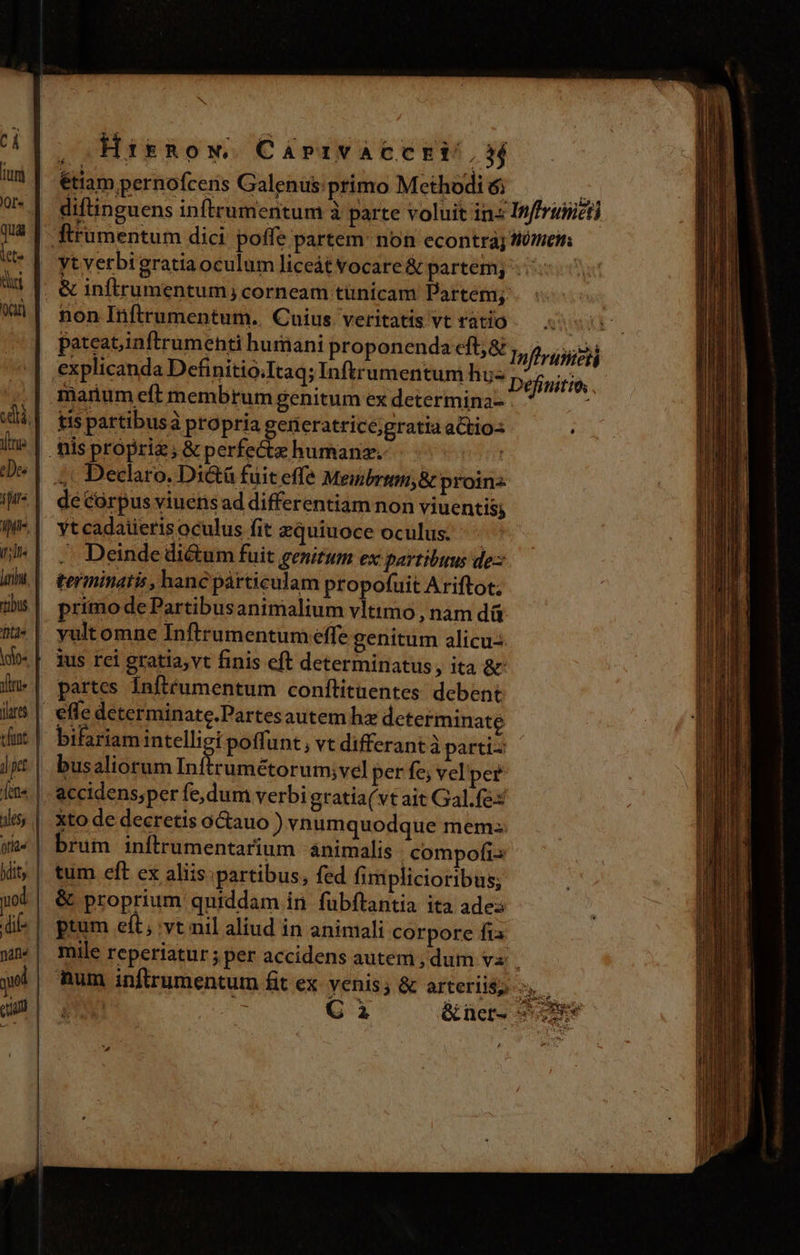 HIERON. CAPIVACCEI. 35
etiam pernoſcens Galenus primo Methodi 6.
diſtinguens inſtrumentum à parte voluit in-
Inſtrumēti
ſtrumentum dici poſſe partem non econtra;
nomen.
vt verbi gratia oculum liceat vocare & partem,
& inſtrumentum; corneam tunicam Partem,
non Inſtrumentum. Cuius veritatis vt ratio
pateat, inſtrumenti humani proponenda eſt, &
Inſtrumēti
explicanda Definitio. Itaq; Inſtrumentum hu-
Definitio.
manum eſt membrum genitum ex determina-
tis partibus à propria generatrice, gratia actio-
nis propriæ, & perfectæ humanæ.
Declaro. Dictū fuit eſſe Membrum, & proin-
de corpus viuens ad differentiam non viuentis,
vt cadaueris oculus fit æquiuoce oculus.
Deinde dictum fuit genitum ex partibuus de-
terminatis, hanc particulam propoſuit Ariſtot.
primo de Partibus animalium vltimo, nam dū
vult omne Inſtrumentum eſſe genitum alicu-
ius rei gratia, vt finis eſt determinatus, ita &
partes Inſtrumentum conſtituentes debent
eſſe determinate. Partes autem hæ determinate
bifariam intelligi poſſunt, vt differant à parti-
bus aliorum Inſtrumētorum; vel per ſe, vel per
accidens, per ſe, dum verbi gratia (vt ait Gal. ſe-
xto de decretis octauo) vnumquodque mem-
brum inſtrumentarium animalis compoſi-
tum eſt ex aliis partibus, ſed ſimplicioribus,
& proprium quiddam in ſubſtantia ita ade-
ptum eſt, vt nil aliud in animali corpore ſi-
mile reperiatur; per accidens autem, dum v-
num inſtrumentum fit ex venis, & arteriis,
C 2 & ner-